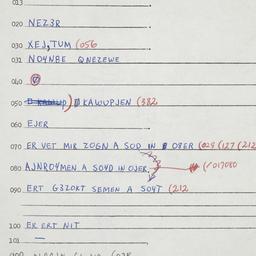 013
020 NEZ3R
030 XEJ,TUM (056
031 NO4NBE QNEZEWE
040
050 KAWUPJEN (382
060 EJER
070 ER VET MIR ZOGN A SOD IN O8ER (029 (127 (212
080 AJNRO4MEN A SO4D IN OJER (017080
090 ERT G3ZOKT SEMEN A SO4T (212
100 ER ERT NIT
101 —